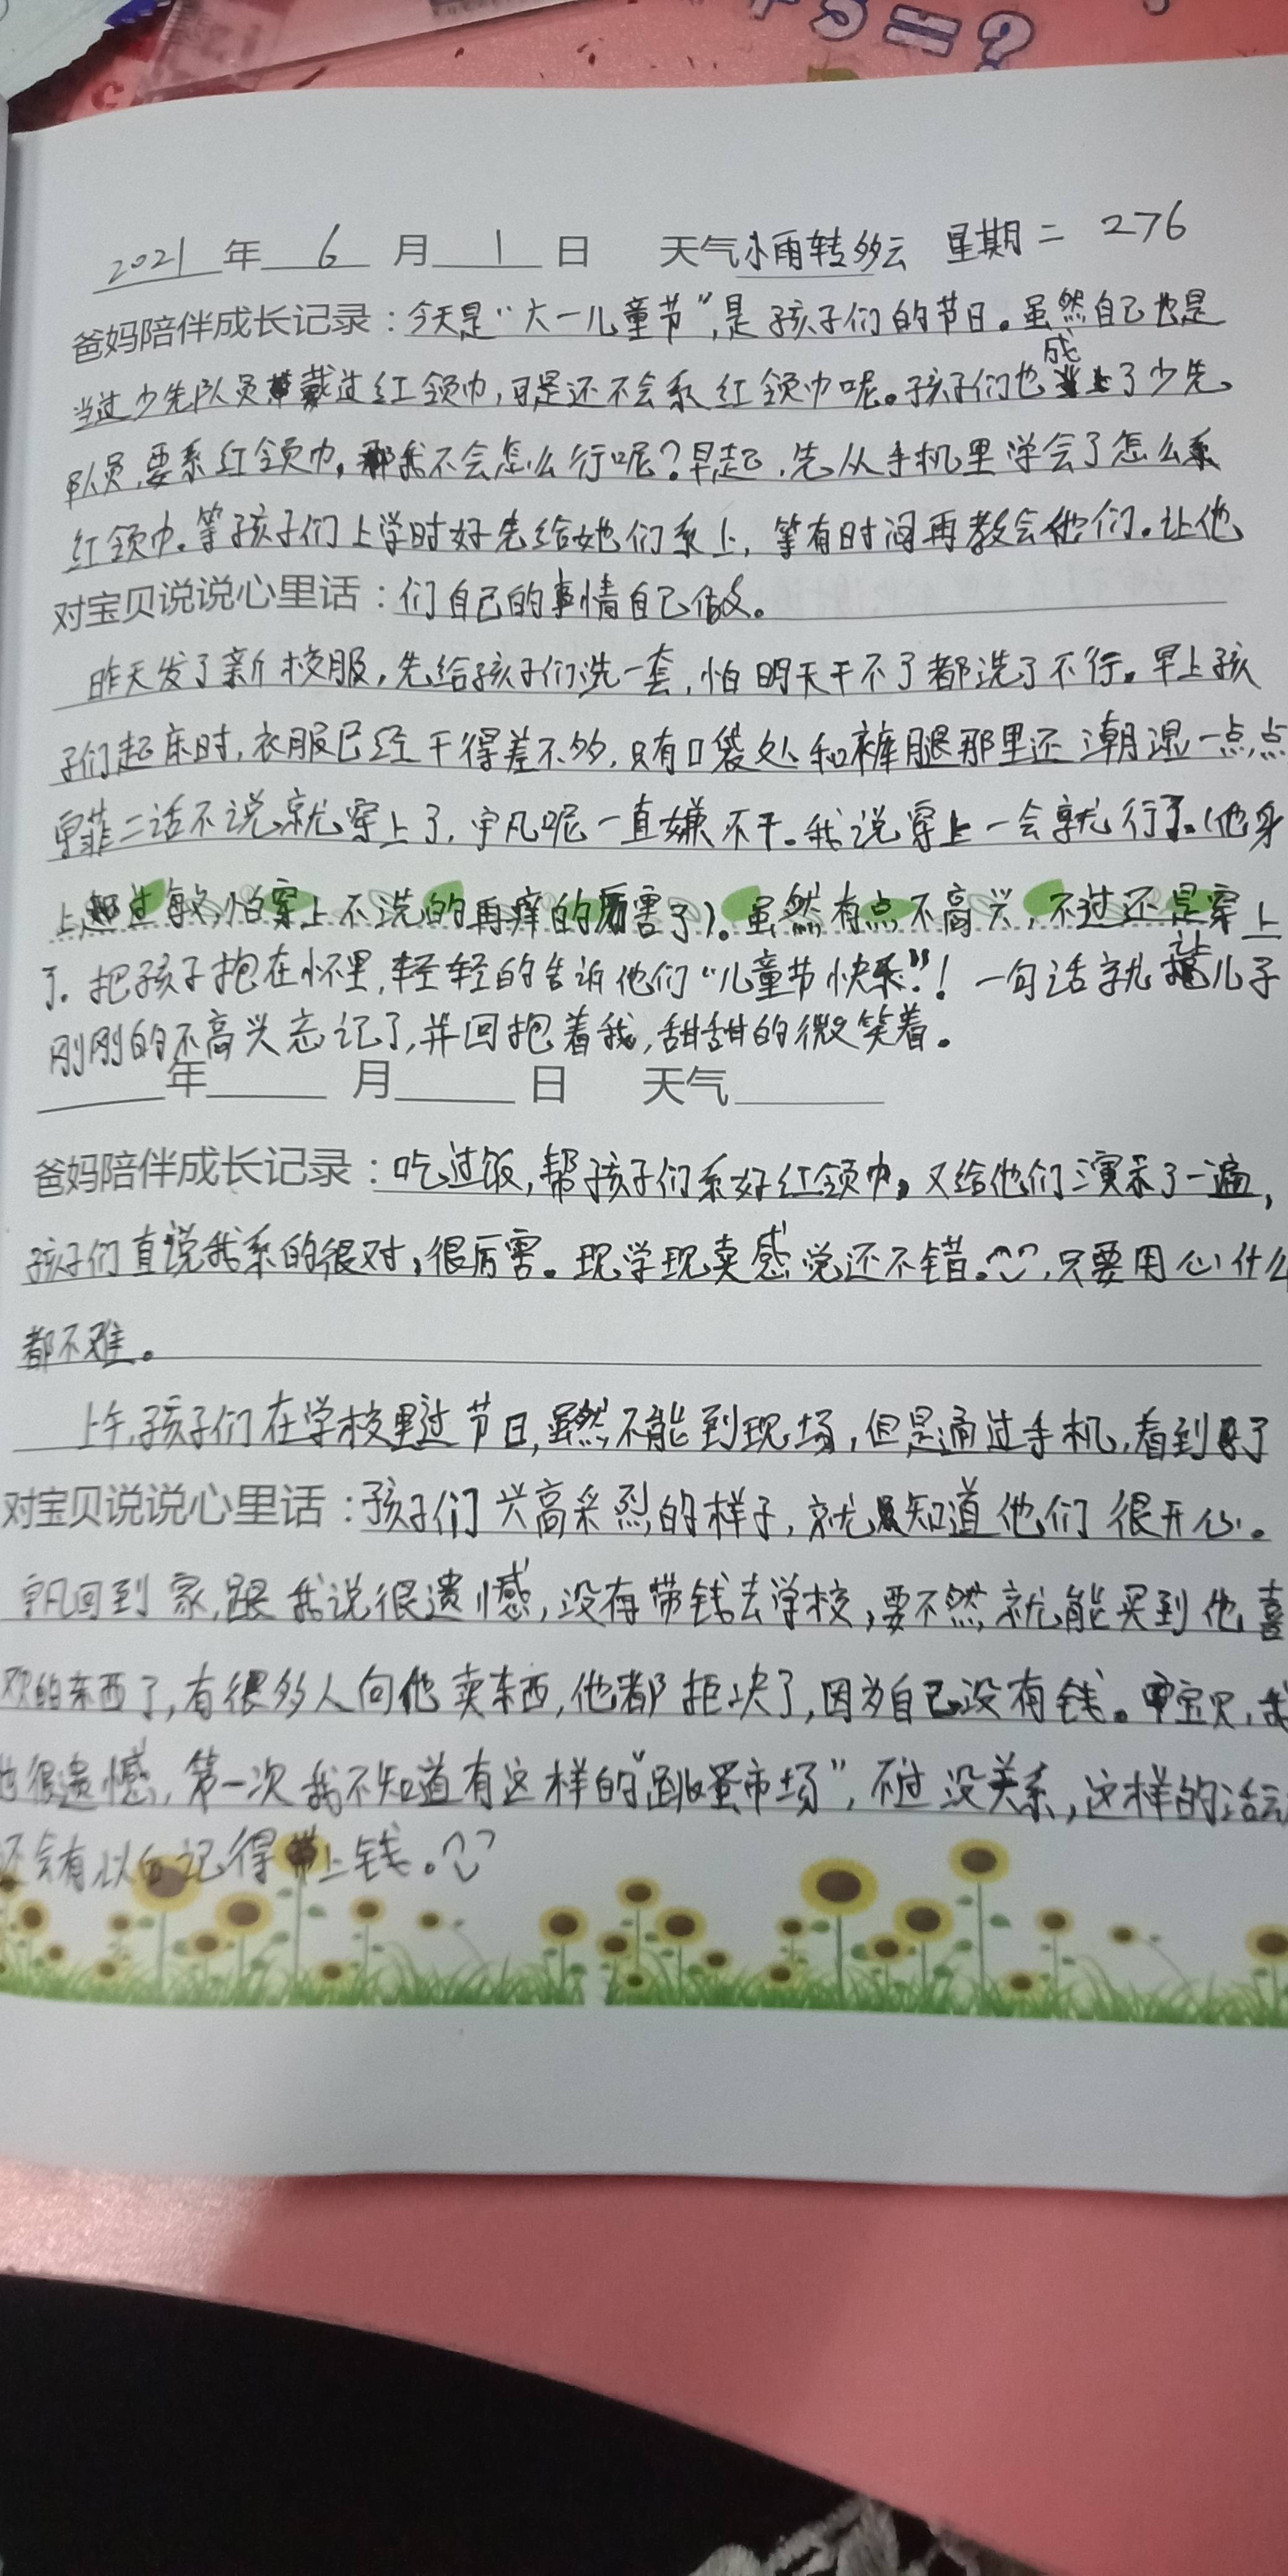 +5=?
2021年 6 月 1 日 天气小雨转多云 星期二 276
爸妈陪伴成长记录：今天是“六一儿童节”，是孩子们的节日。虽然自己也是
当过少先队员戴过红领巾，可是还不会系红领巾呢。孩子们也成了少先
队员，要系红领巾，那我不会怎么行呢？早起，先从手机里学会了怎么系
红领巾。等孩子们上学时好先给她们系上，等有时间再教会他们。让他
对宝贝说说心里话：们自己的事情自己做。
昨天发了新校服，先给孩子们洗一套，怕明天干不了都洗了不行。早上孩
子们起床时，衣服已经干得差不多，只有口袋处和裤腿那里还潮湿一点点
菲二话不说就穿上了，宇凡呢一直嫌不干。我说穿上一会就行了。（他身
上起过敏，怕穿上不洗的再痒的厉害了）。虽然有点不高兴，不过还是穿上
了。把孩子抱在怀里，轻轻的告诉他们“儿童节快乐”！一句话就让儿子
刚刚的不高兴忘记了，并回抱着我，甜甜的微笑着。
年 月 日 天气
爸妈陪伴成长记录：吃过饭，帮孩子们系好红领巾，又给他们演示了一遍，
孩子们直说我系的很对，很厉害。现学现卖感觉还不错。只要用心什么
都不难。
上午，孩子们在学校里过节日，虽然不能到现场，但是通过手机，看到了
对宝贝说说心里话：孩子们兴高采烈的样子，就知道他们很开心。
宇凡回到家，跟我说很遗憾，没有带钱去学校，要不然就能买到他喜
欢的东西了，有很多人向他卖东西，他都拒决了，因为自己没有钱。宝贝，我
也很遗憾，第一次我不知道有这样的“跳蚤市场”，不过没关系，这样的活动
还会有以后记得带上钱。